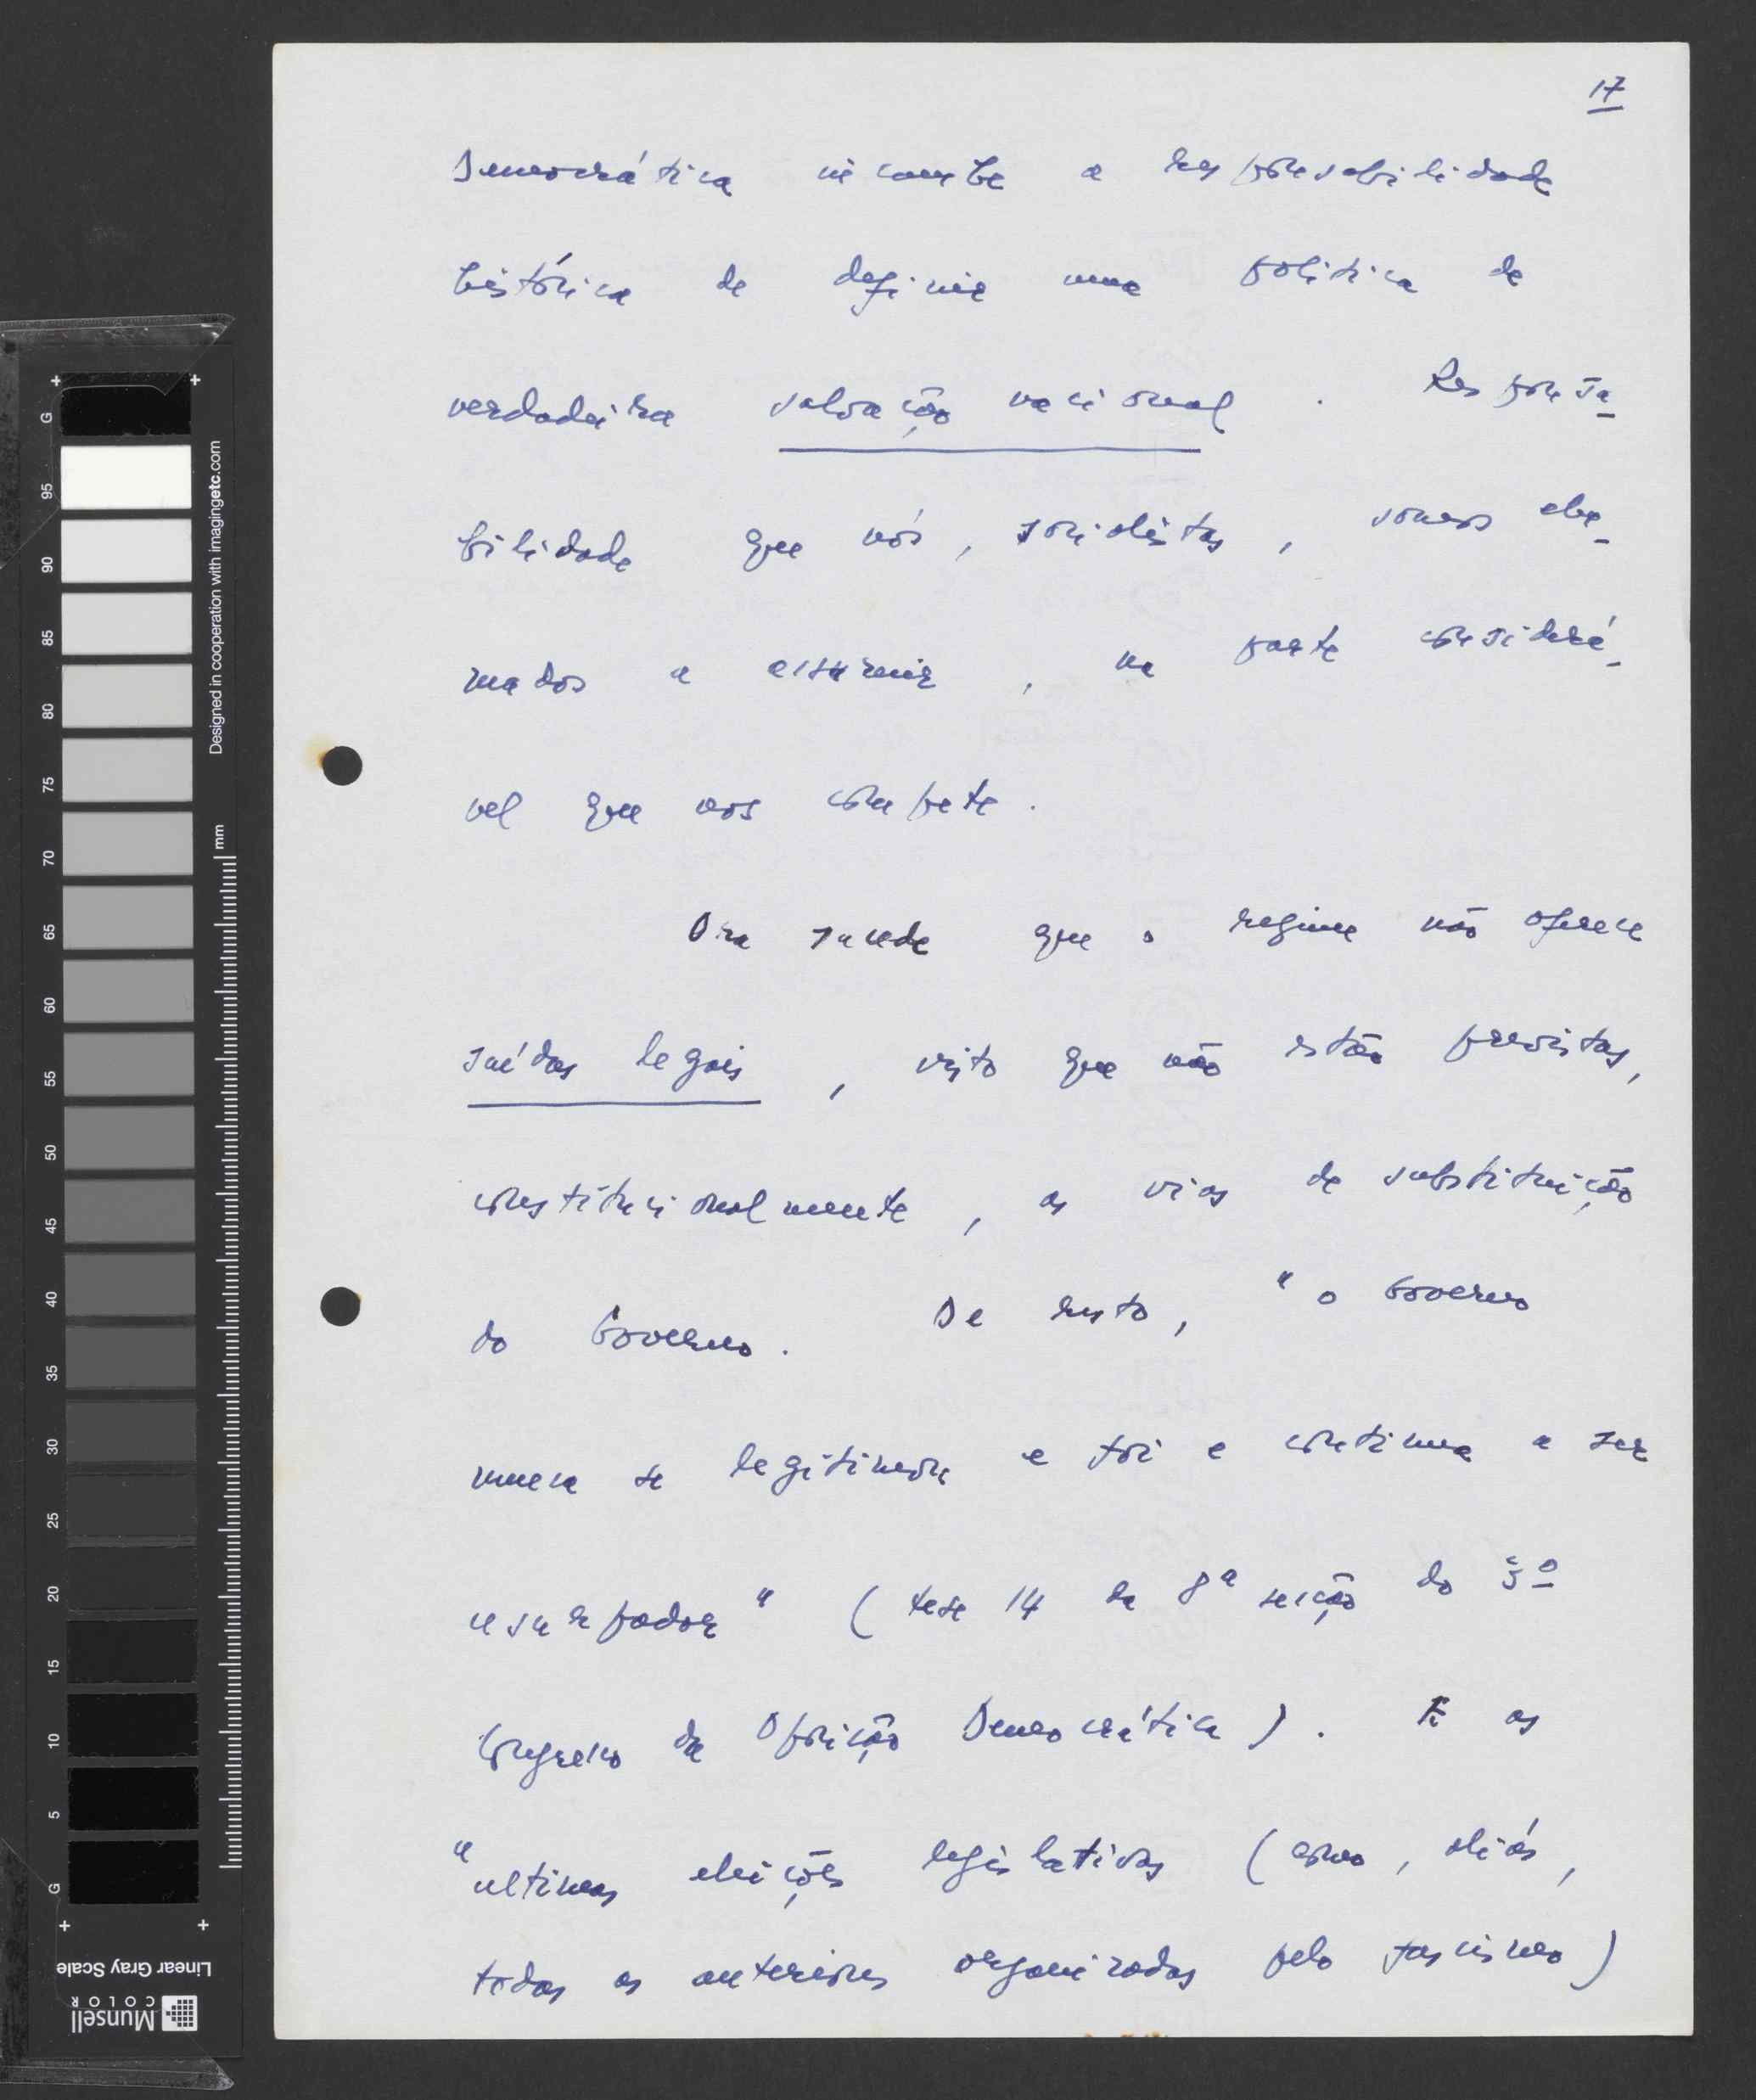 17
Democrática incumbe a responsabilidade
histórica de definir uma política de
verdadeira salvação nacional. Responsa-
bilidade que nós, socialistas, somos cha-
mados a assumir, na parte considerá-
vel que nos compete.
Ora sucede que o regime não oferece
saídas legais, visto que não estão previstas,
constitucionalmente, as vias de substituição
do Governo. De resto, "o Governo
nunca se legitimou e foi e continua a ser
usurpador" (tese 14 da 8ª secção do 3º
Congresso da Oposição Democrática). E as
"ultimas eleições legislativas (como, aliás,
todas as anteriores organizadas pelo fascismo)
+ +
G
95
90
85
80
75
70
65
60
55
50
45
40
35
30
25
20
15
10
5
G
+ +
Designed in cooperation with imagingetc.com
mm
Linear Gray Scale
Munsell
COLOR